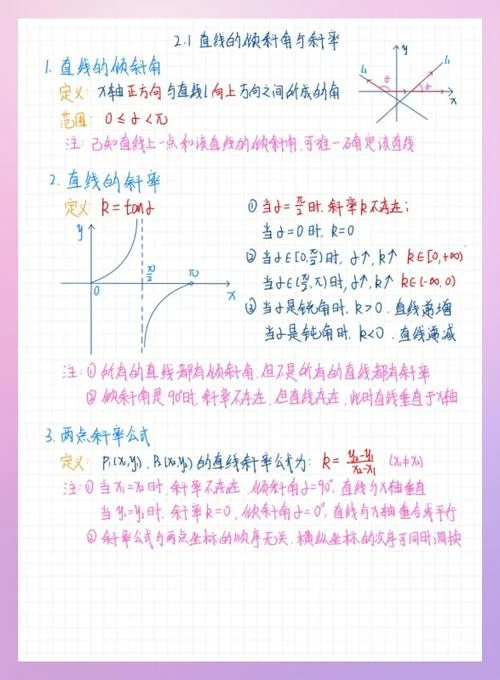 2.1 直线的倾斜角与斜率
1. 直线的倾斜角
y
l₂
l₁
α
α
x
定义: x轴正方向与直线l向上方向之间所成的角
范围: 0≤α<π
注: 已知直线上一点和该直线的倾斜角,可唯一确定该直线
2. 直线的斜率
定义: k=tanα
y
0
π/2
π
x
①当α=π/2时,斜率k不存在;
当α=0时, k=0
②当α∈[0,π/2)时,α↑,k↑ k∈[0,+∞)
当α∈(π/2,π)时,α↑,k↑ k∈(-∞,0)
③当α是锐角时,k>0,直线递增
当α是钝角时,k<0,直线递减
注: ①所有的直线都有倾斜角,但不是所有的直线都有斜率
②倾斜角是90°时,斜率不存在,但直线存在,此时直线垂直于x轴
3. 两点斜率公式
定义: P₁(x₁,y₁),P₂(x₂,y₂)的直线斜率公式为: k=(y₂-y₁)/(x₂-x₁) (x₁≠x₂)
注: ①当x₁=x₂时,斜率不存在,倾斜角α=90°,直线与x轴垂直
当y₁=y₂时,斜率k=0,倾斜角α=0°,直线与x轴重合或平行
②斜率公式与两点坐标的顺序无关,横纵坐标的次序可同时调换